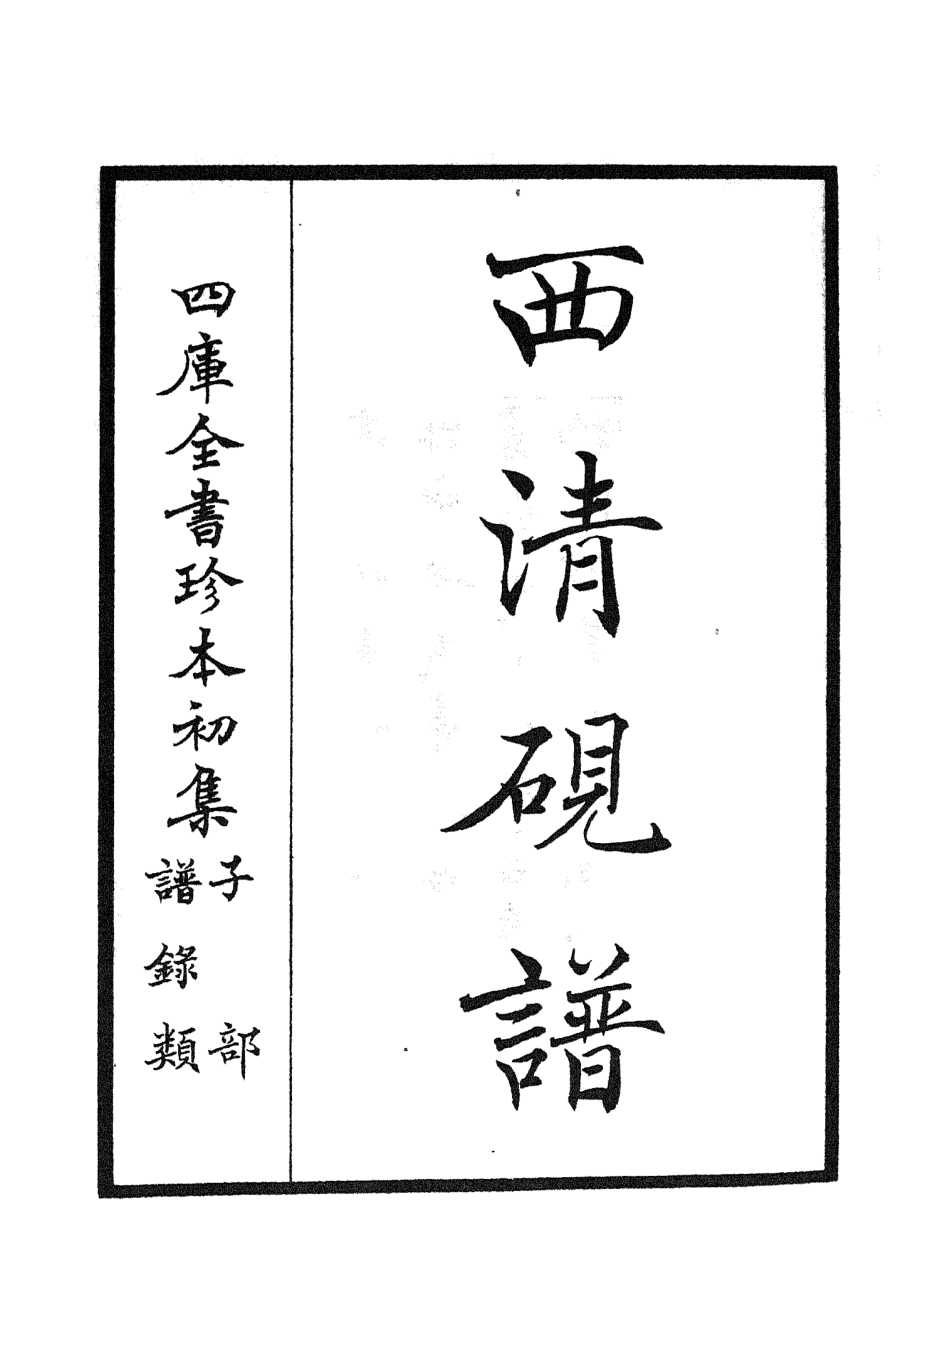 西清硯譜
四庫全書珍本初集
子部
譜錄類